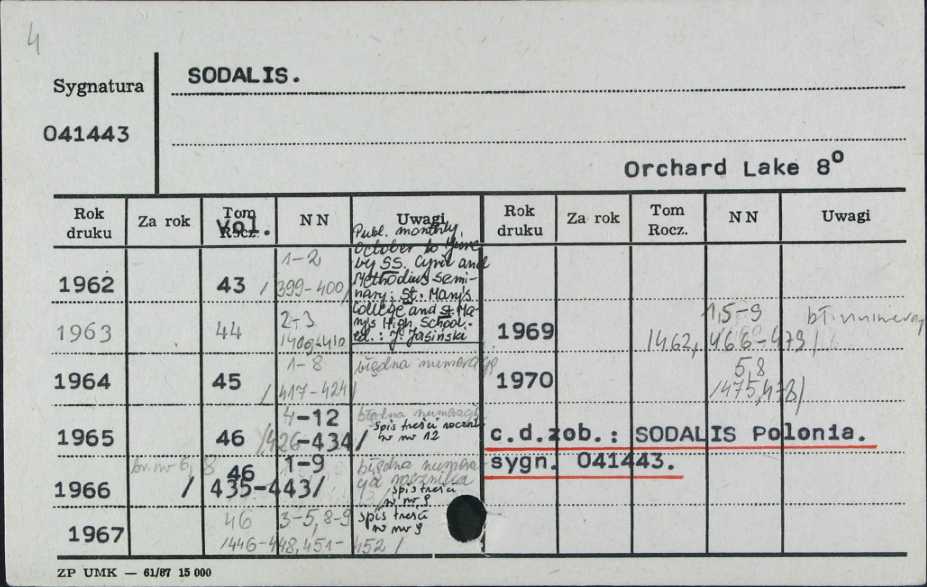 4
Sygnatura
SODALIS.
041443
Orchard Lake 8°
Rok druku Za rok Tom Rocz. Vol. NN Uwagi Rok druku Za rok Tom Rocz. NN Uwagi
Publ. monthly,
October to June
by SS. Cyril and
Methodius semi-
nary: St. Mary's
College and St. Ma-
ry's High School.
ed.: J. Jasiński
1962 43 1-2
/399-400/
1963 44 2-3
1964 45 1-8 błędna numeracja
/417-424/
1965 46 4-12
/426-434/
spis treści roczn.
w nr 12
1966 br. nr 6, 8 46 1-9 błędna numera-
cja rocznika
/435-443/
spis treści
w nr 9
1967 46 3-5, 8-9 spis treści
w nr 9
/446-448, 451-452/
1969 1,5-9 bł. numeracj
/462, 466-473/
1970 5,8
/475,478/
c.d.zob.: SODALIS Polonia.
sygn. 041443.
ZP UMK — 61/87 15 000